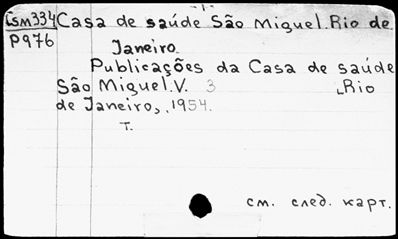 - 1 -
Csm334 Casa de saúde São Miguel. Rio de
P976 Janeiro.
Publicações da Casa de saúde
São Miguel. V. 3 Rio
de Janeiro, 1954.
т.
см. след. карт.